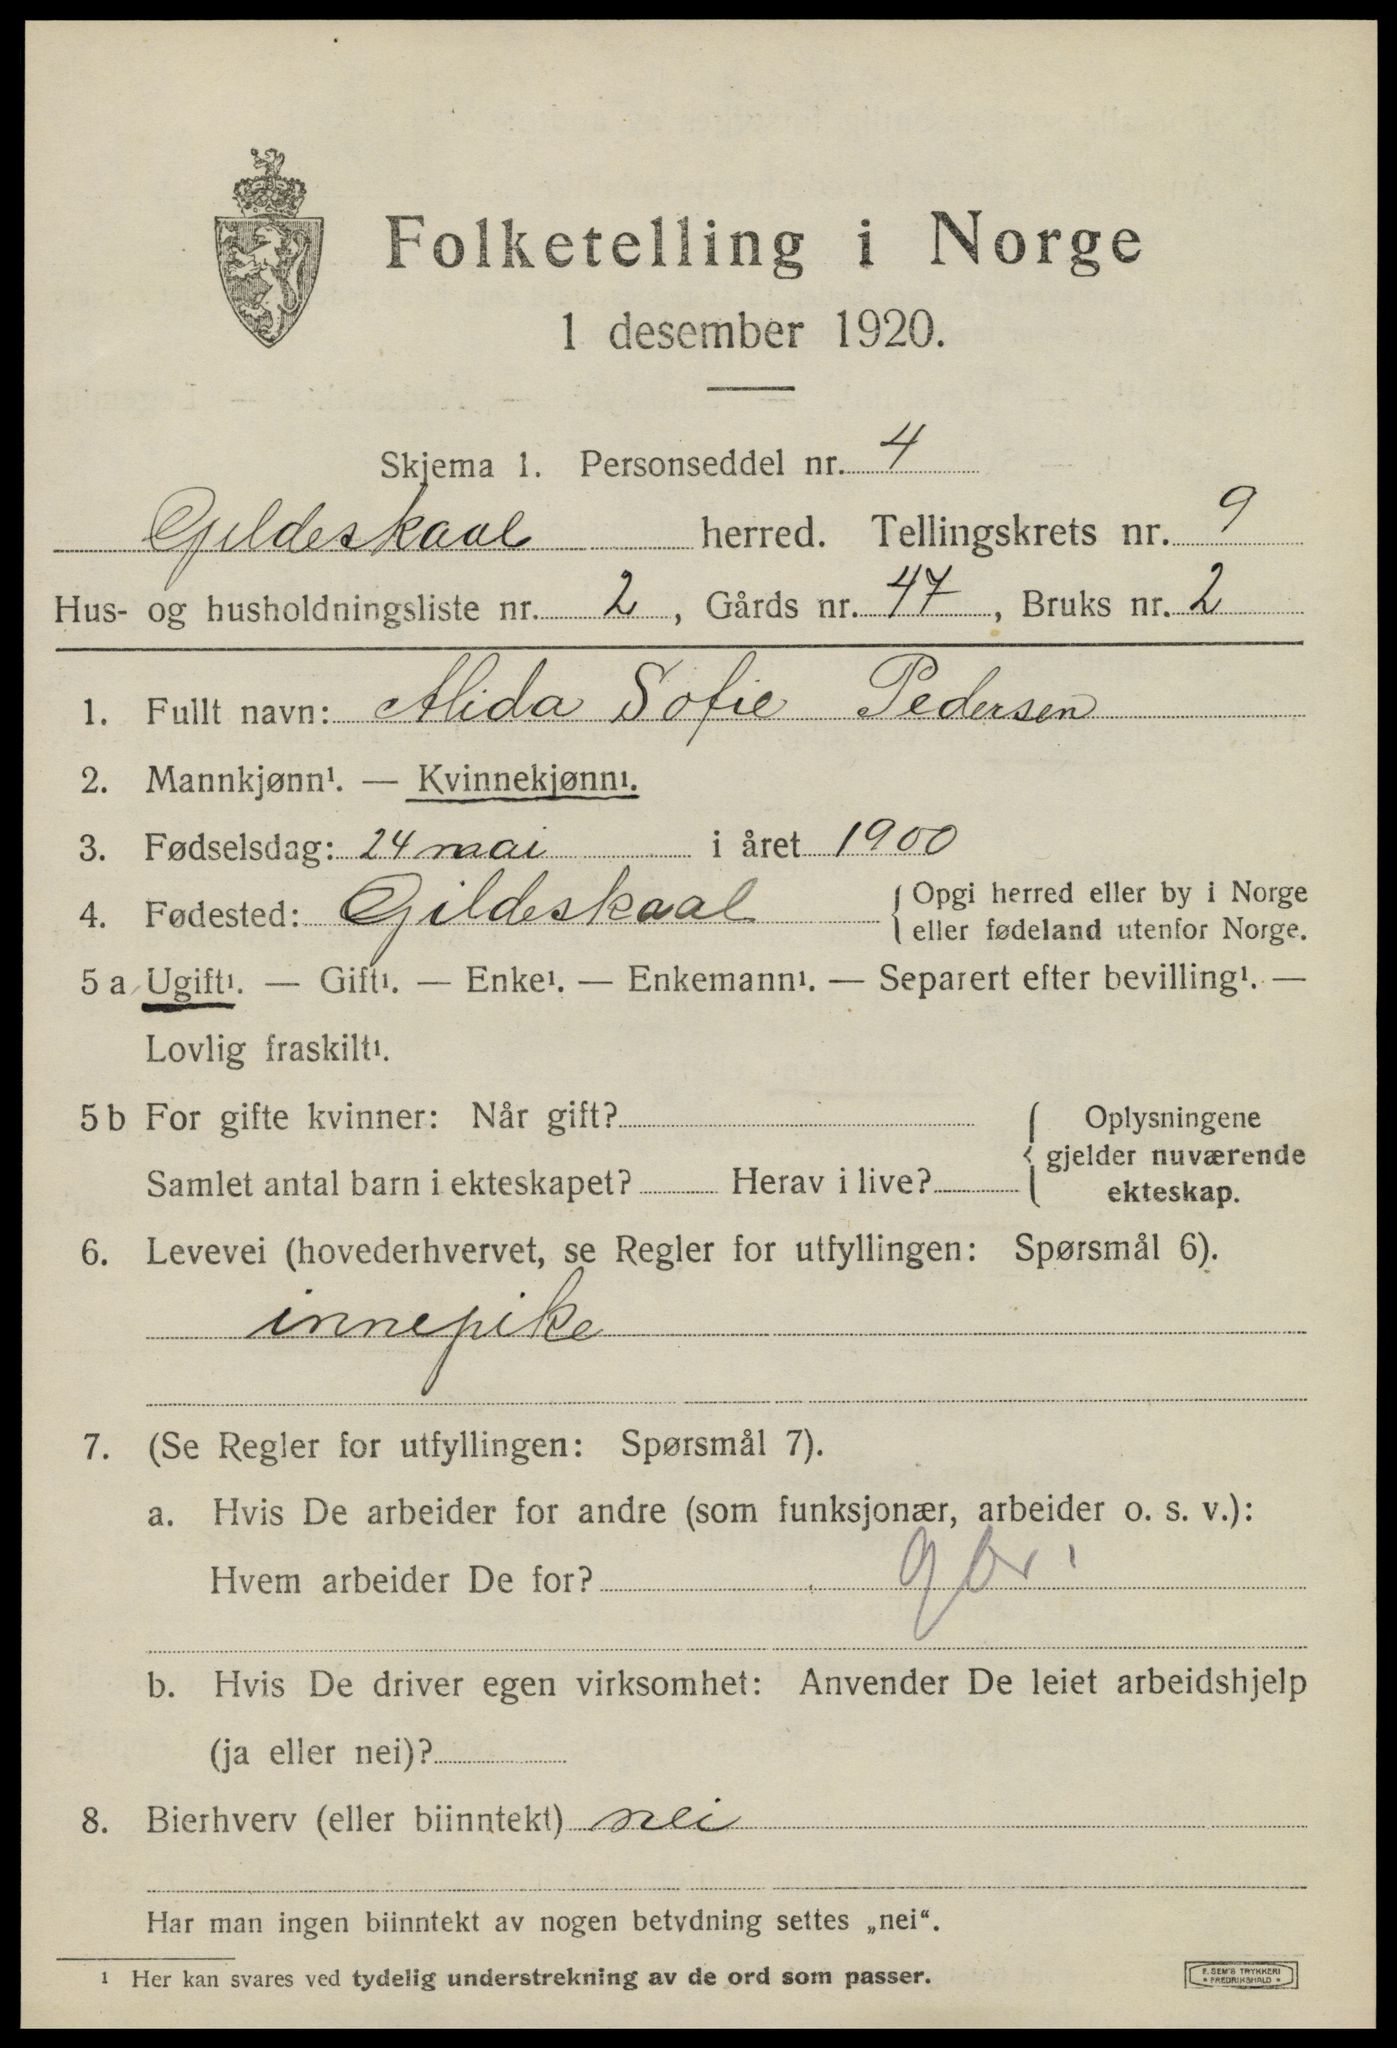 Folketelling i Norge
1 desember 1920.
Skjema 1. Personseddel nr. 4
Gildeskaal herred. Tellingskrets nr. 9
Hus- og husholdningsliste nr. 2, Gårds nr. 47, Bruks nr. 2
1. Fullt navn: Alida Sofie Pedersen
2. Mannkjønn¹. — Kvinnekjønn¹.
3. Fødselsdag: 24 mai i året 1900
4. Fødested: Gildeskaal { Opgi herred eller by i Norge
eller fødeland utenfor Norge.
5 a Ugift¹. — Gift¹. — Enke¹. — Enkemann¹. — Separert efter bevilling¹. —
Lovlig fraskilt¹.
5 b For gifte kvinner: Når gift?
Samlet antal barn i ekteskapet? Herav i live?
{ Oplysningene
gjelder nuværende
ekteskap.
6. Levevei (hovederhvervet, se Regler for utfyllingen: Spørsmål 6).
innepike
7. (Se Regler for utfyllingen: Spørsmål 7).
a. Hvis De arbeider for andre (som funksjonær, arbeider o. s. v.):
Hvem arbeider De for?
b. Hvis De driver egen virksomhet: Anvender De leiet arbeidshjelp
(ja eller nei)?
8. Bierhverv (eller biinntekt) nei
Har man ingen biinntekt av nogen betydning settes „nei“.
¹ Her kan svares ved tydelig understrekning av de ord som passer.
F. SEM'S TRYKKERI
* FREDRIKSHALD *